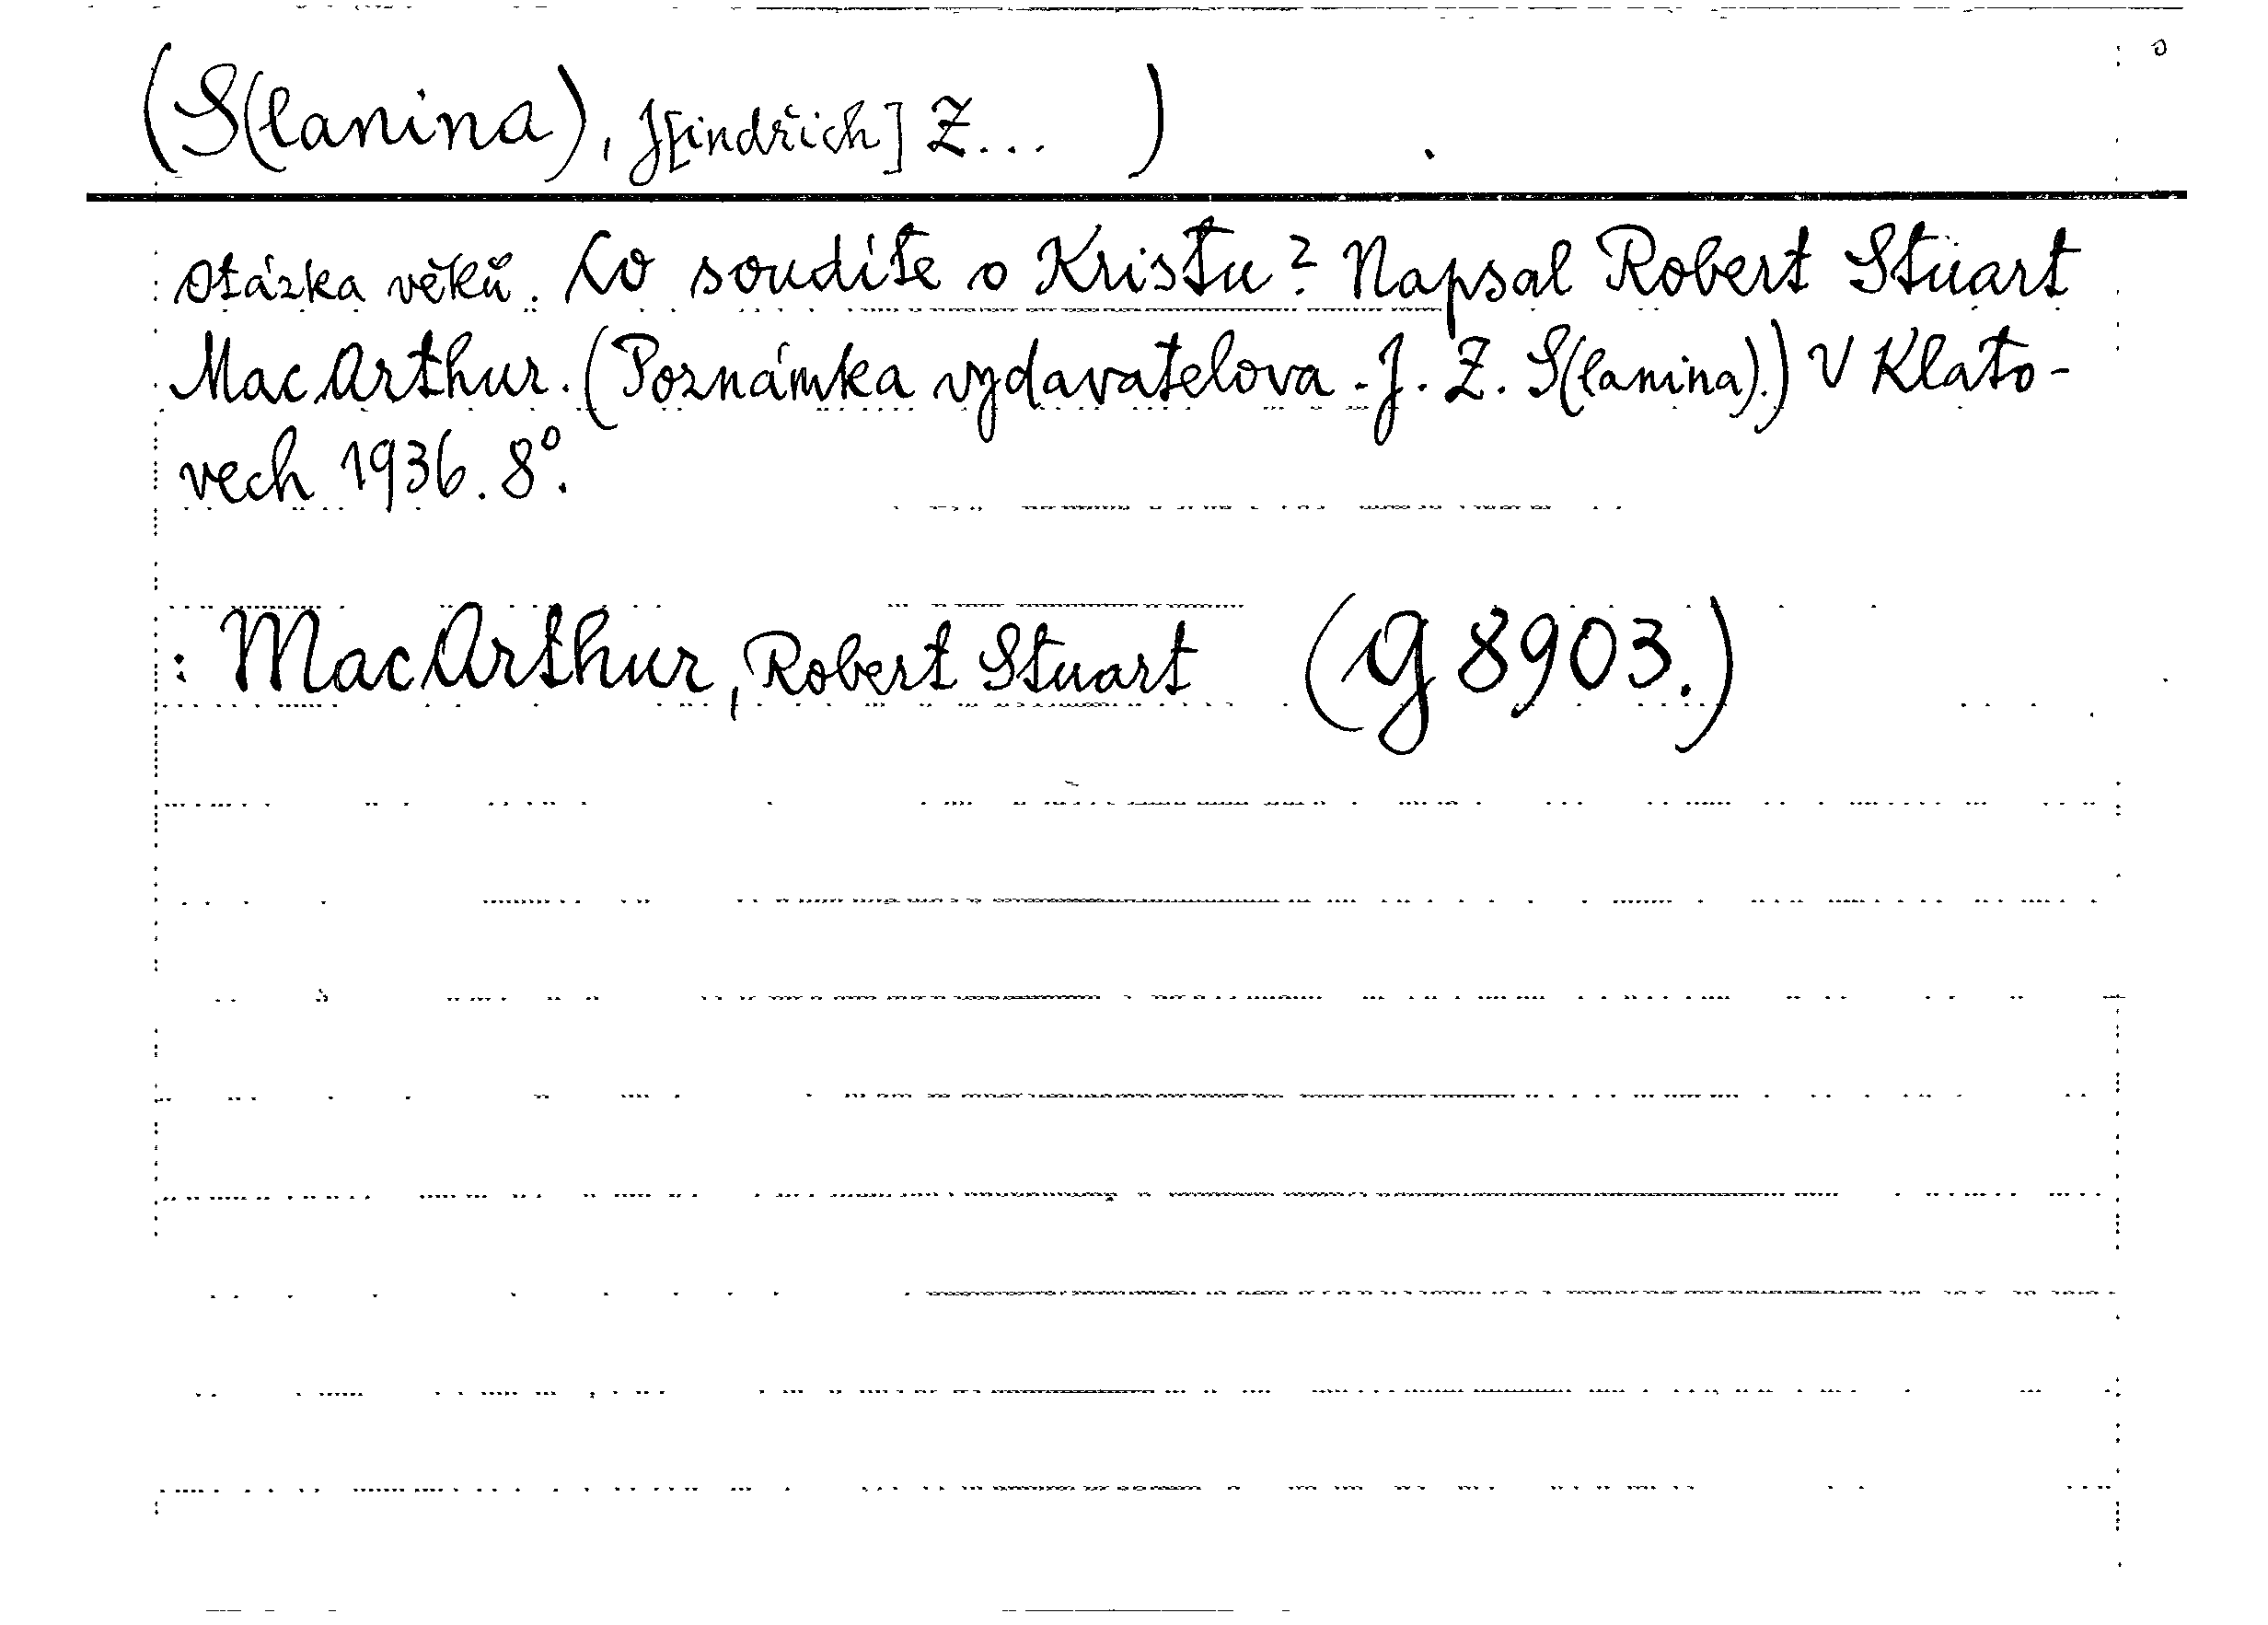 (S(lanina), J[indřich] Z... )
Otázka věků. Co soudíte o Kristu? Napsal Robert Stuart
MacArthur. (Poznámka vydavatelova - J. Z. S(lanina).) V Klato-
vech 1936. 8°.
: MacArthur, Robert Stuart (G 8903.)